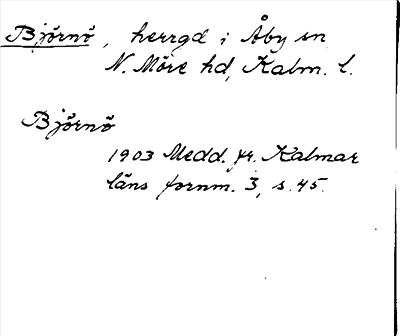 Björnö, herrgd i Åby sn
N. Möre hd, Kalm. l.
Björnö
1903 Medd. fr. Kalmar
läns fornm. 3, s. 45.